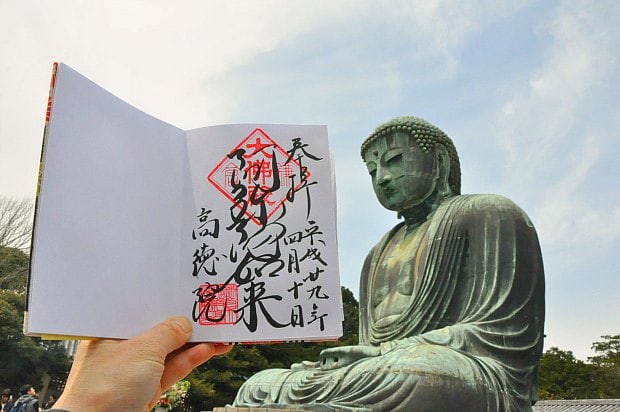 奉拝
平成廿九年
四月十日
阿弥陀如来
大佛殿
高徳院